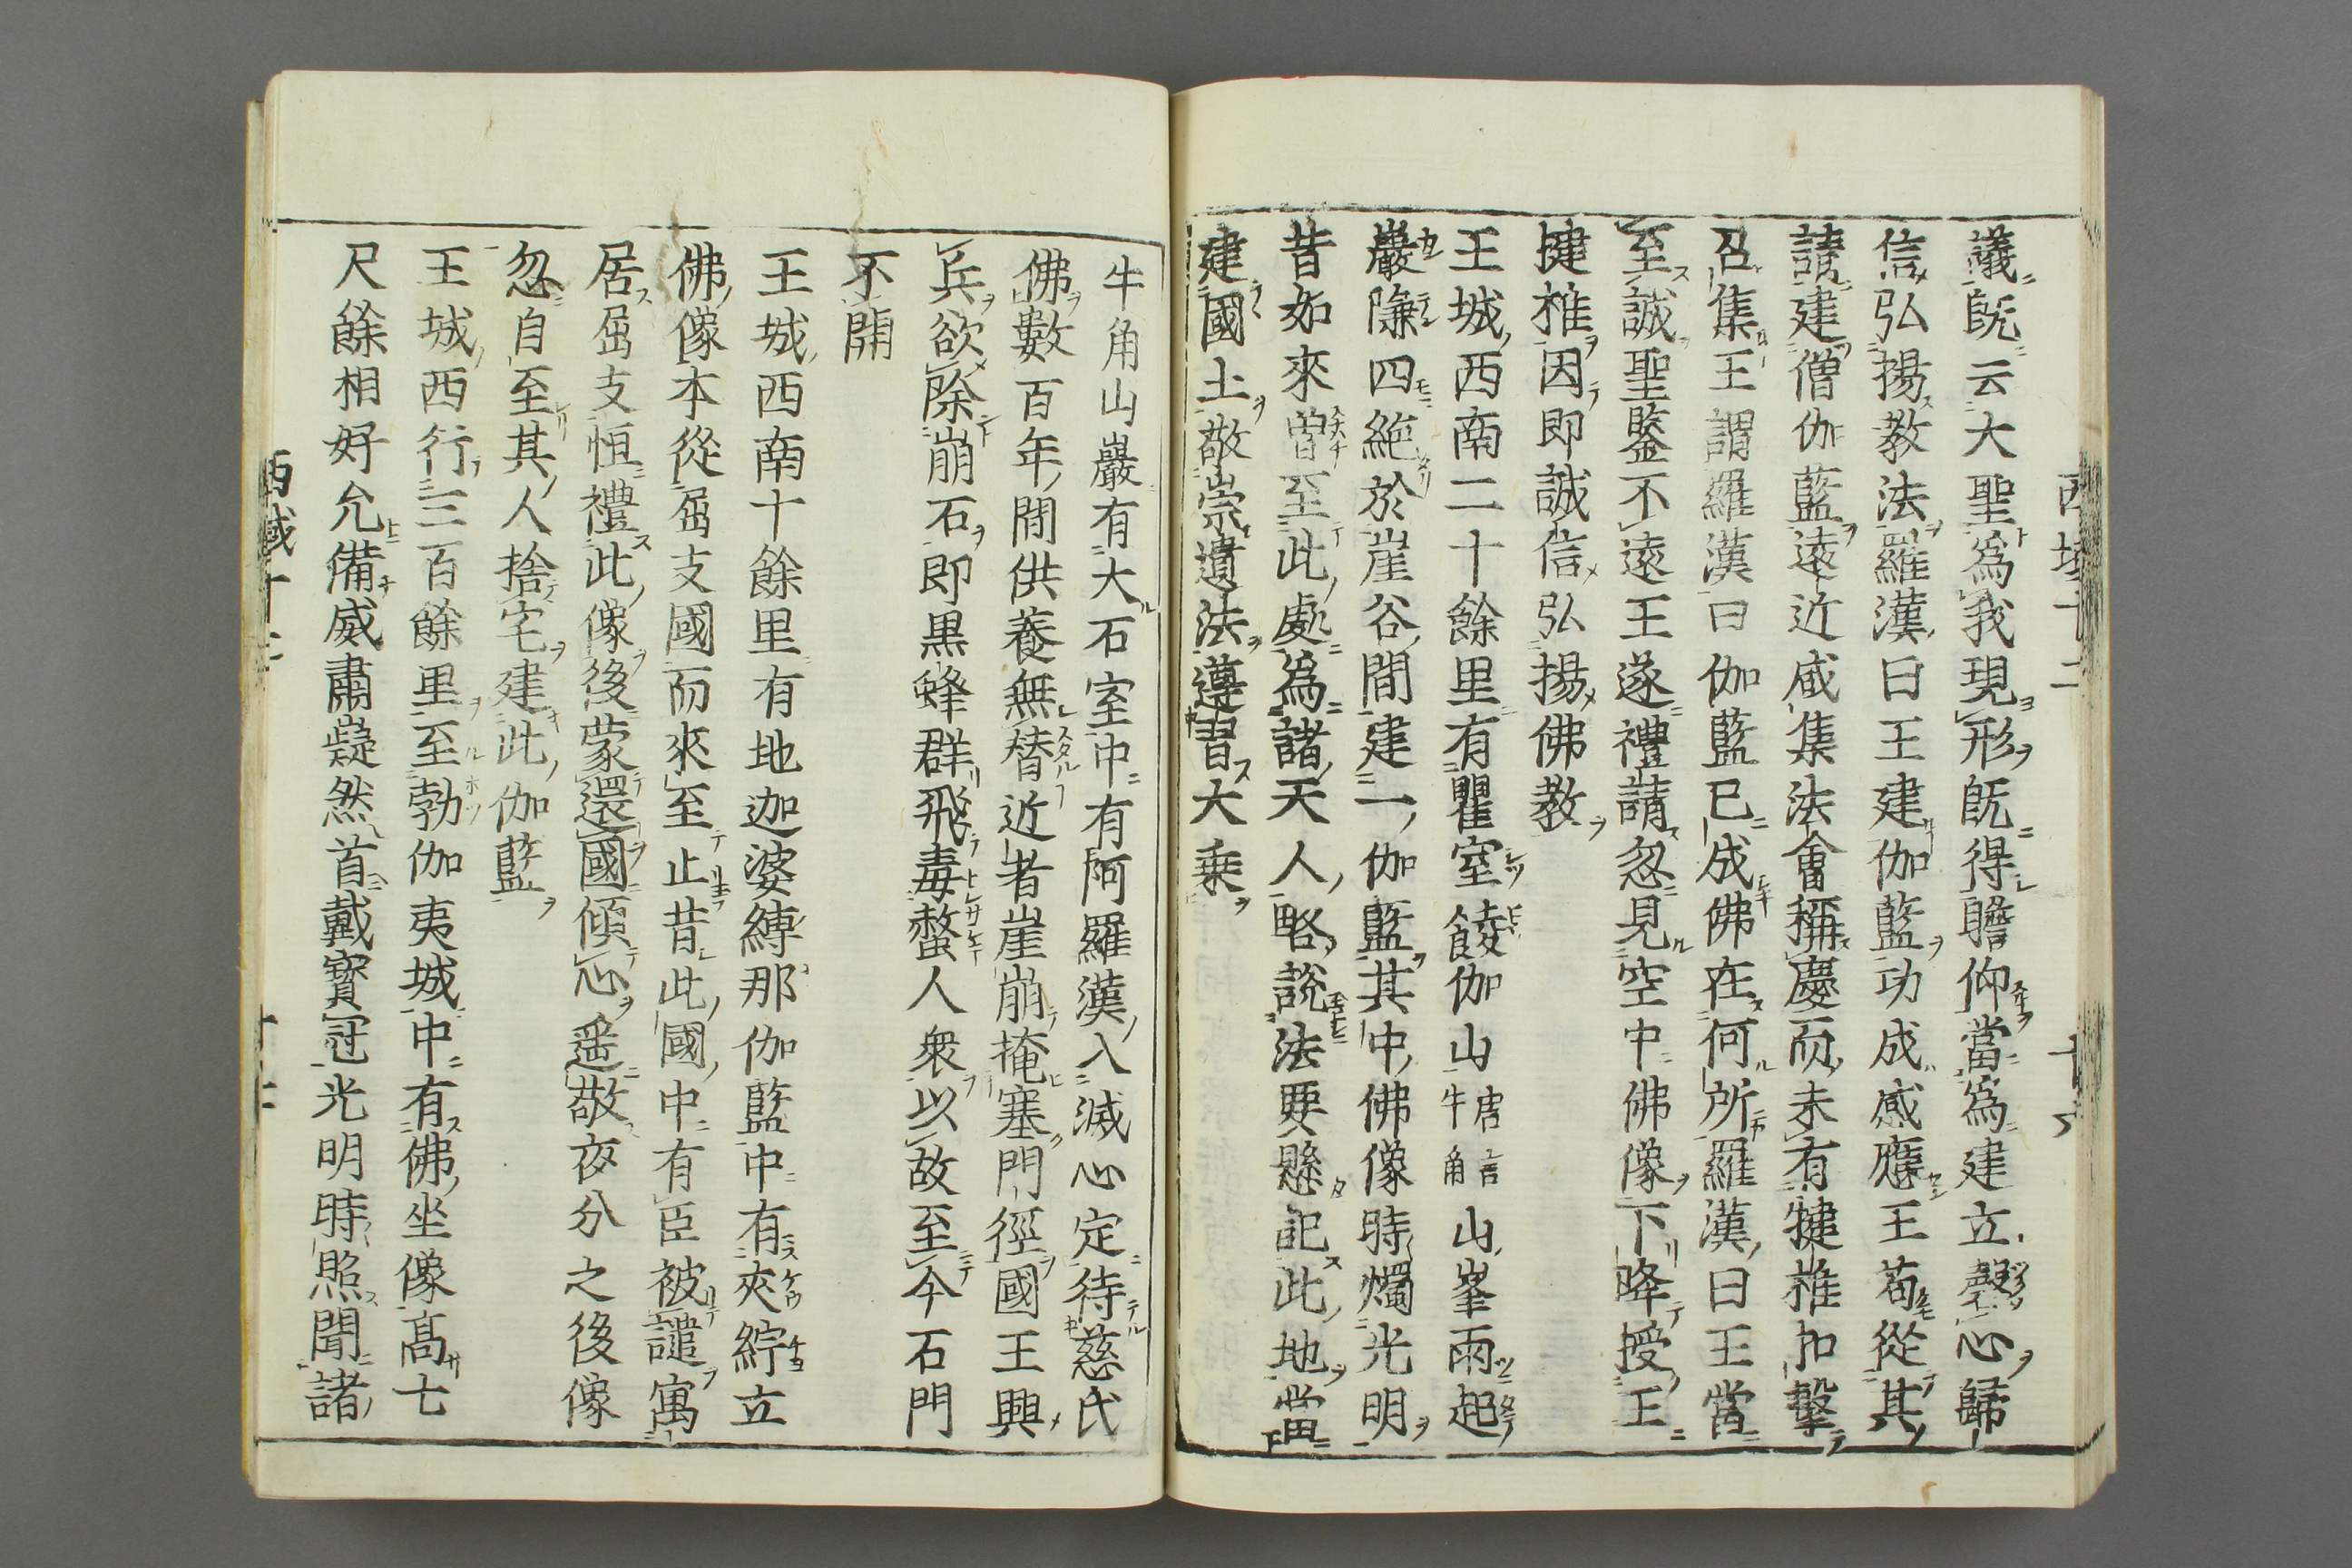 議既云大聖爲我現形既得瞻仰當爲建立罄心歸
信弘揚教法羅漢曰王建伽藍功成感應王苟從其
請建僧伽藍遠近咸集法會稱慶而未有犍椎扣擊
召集王謂羅漢曰伽藍已成佛在何所羅漢曰王當
至誠聖鑒不遠王遂禮請忽見空中佛像下降授王
揵椎因即誠信弘揚佛教
王城西南二十餘里有瞿室餕伽山唐言牛角山峯兩起
巖隒四絕於崖谷間建一伽藍其中佛像時燭光明
昔如來曾至此處爲諸天人略說法要懸記此地當
建國土敬崇遺法遵習大乗
牛角山巖有大石室中有阿羅漢入滅心定待慈氏
佛數百年間供養無替近者崖崩掩塞門徑國王興
兵欲除崩石即黒蜂群飛毒螫人衆以故至今石門
不開
王城西南十餘里有地迦婆縛那伽藍中有夾紵立
佛像本從屈支國而來至止昔此國中有臣被譴寓
居屈支恒禮此像後蒙還國傾心遥敬夜分之後像
忽自至其人捨宅建此伽藍
王城西行三百餘里至勃伽夷城中有佛坐像髙七
尺餘相好允備威肅嶷然首戴寳冠光明時照聞諸
西域十二